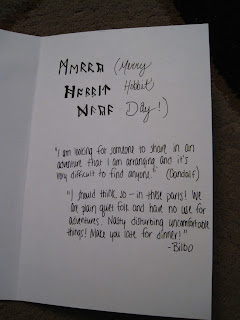 ᛗᛖᚱᚱᚣ (Merry
ᚻᚩᛒᛒᛁᛏ Hobbit
Day!)
"I am looking for someone to share in an
adventure that I am arranging and it's
very difficult to find anyone." (Gandalf)
"I should think so - in these parts! We
are plain quiet folk and have no use for
adventures. Nasty disturbing uncomfortable
things! Make you late for dinner!"
-Bilbo